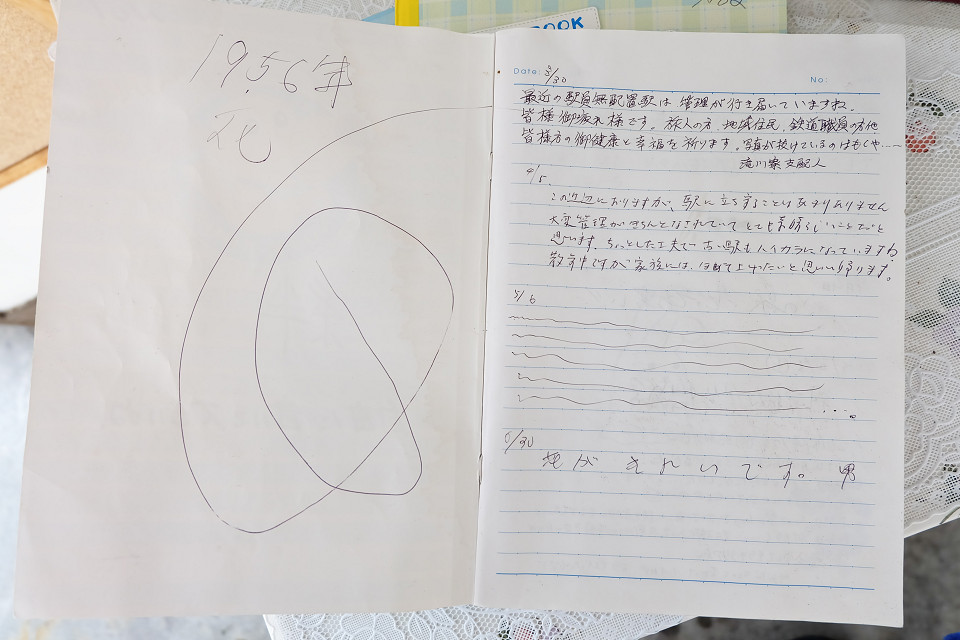 BOOK
1956年
花
Date: 3/30
No:
最近の駅員無配置駅は管理が行き届いていますね。
皆様御疲れ様です。旅人の方、地域住民、鉄道職員の方他
皆様方の御健康と幸福を祈ります。写真が抜けているのはもしや……
滝川寮支配人
4/5.
この近辺におりますが、駅に立ち寄ることはあまりありません
大変管理がきちんとなされていてとても素晴らしいことだと
思います。ちょっとした工夫で古い駅もハイカラになっていますね。
散歩中ですが家族には、ほめて上げたいと思い帰ります。
5/6
....。
6/30
花がきれいです。男